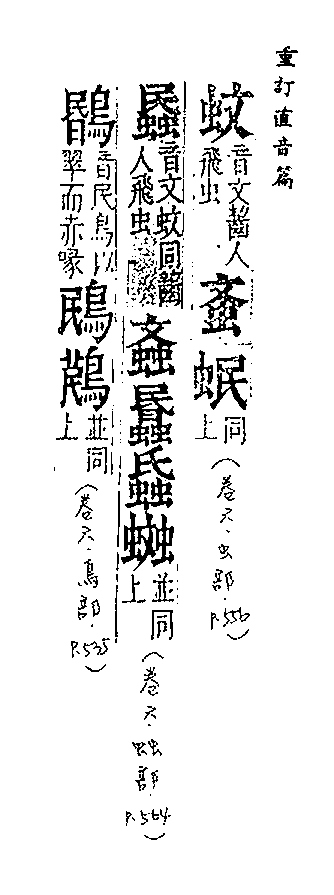 重訂直音篇
蚊音文齧人飛虫𧉬蟁同上(卷六·虫部·P.556)
音文蚊同齧人飛虫並同上(卷六·䖵部·P.564)
鶥音民鳥似翠而赤喙並同上(卷六·鳥部·P.535)